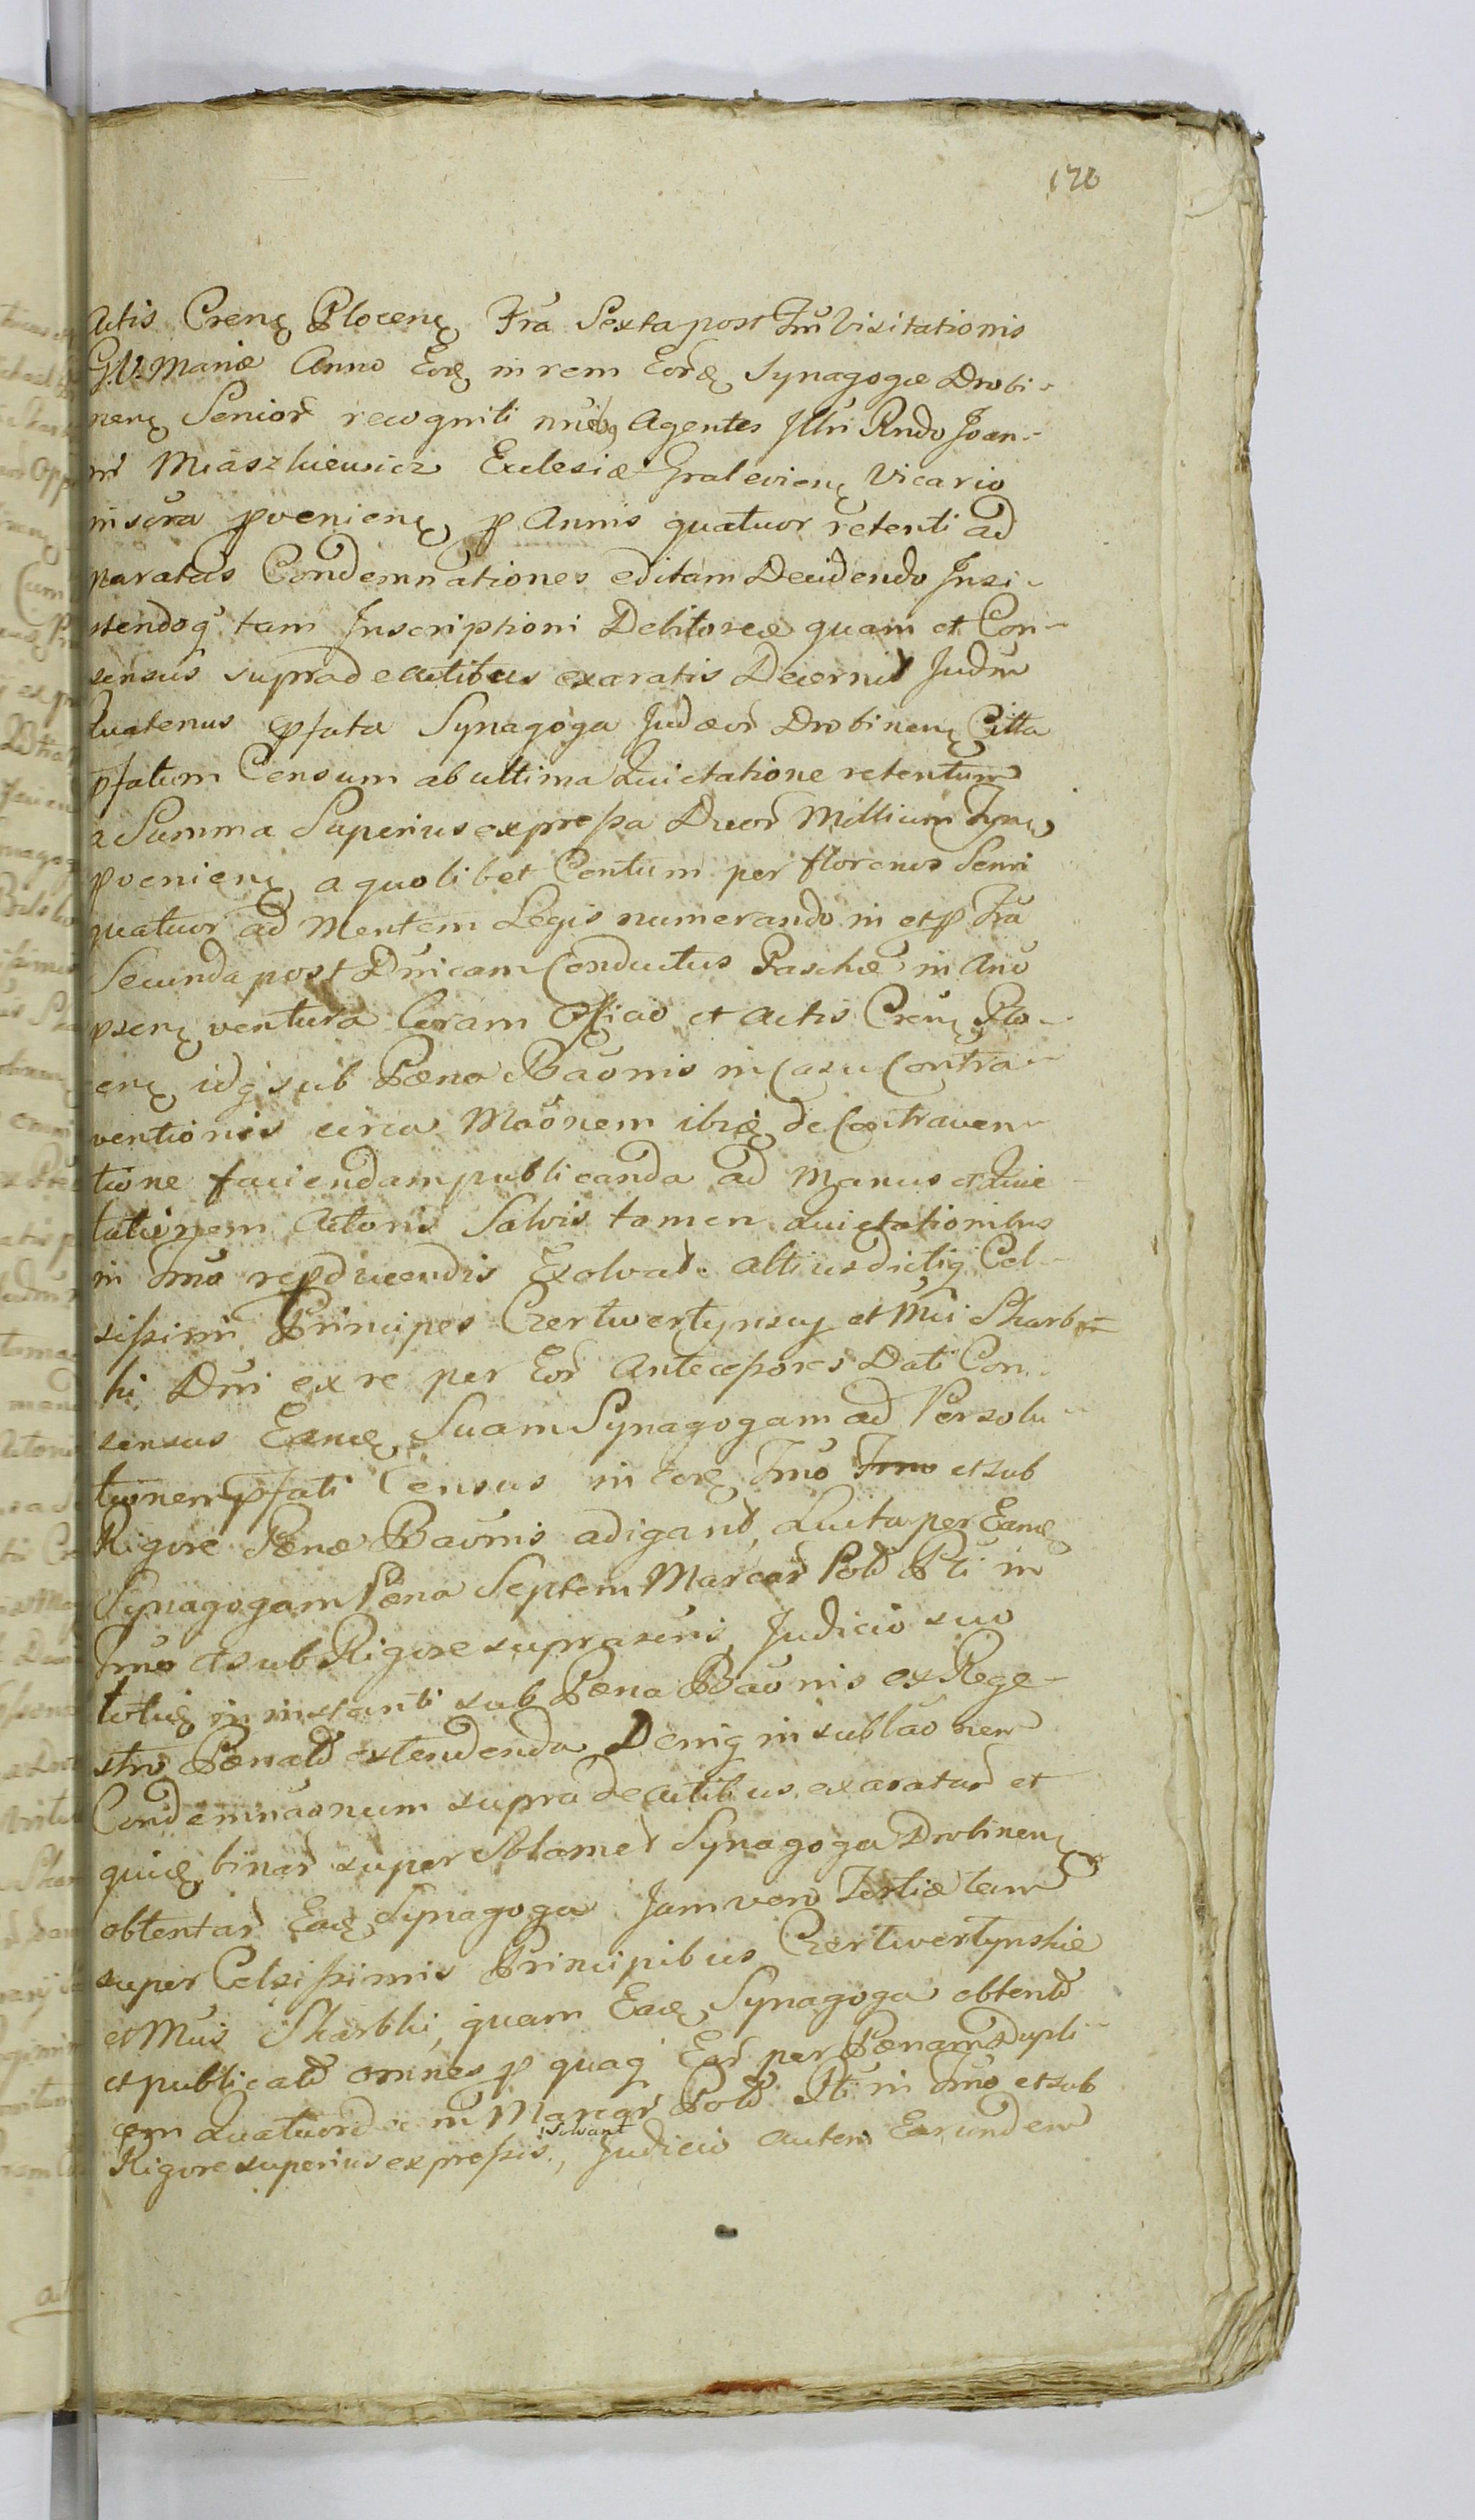 170
Actis Crenę Plocenę Fra Sexta post Ftū Visitationis
G. V. Mariæ Anno Eorę in rem Eordę Synagogæ Drobi-
nenę Senior recogniti Agentes Illri Rndo Joan-
ni Miaszkiewicz Ecclesiæ Gralevienę Vicario
in scŭra pvenienę p Annis quatuor retenti ad
paratas Condemnationes editam Decidendo Insi-
stendoq tam Inscriptioni Debitoreæ quam et Con-
sensus supra de actibus exaratis Decernit Judm
Quatenus pfata Synagoga Judæor Drobinenę Citta
pfatum Censum ab ultima Quietatione retentum
a Summa Superius expressa Duor Millium Tynę
pvenienę a quolibet Centum per florenos Senri
quatuor ad Mentem Legis numerando in et p Fra
Secunda post Dnicam Conductus Paschæ in Ano
psenę ventura Coram Officio et Actis Crenę Plo-
cenę idq sub Pæna Baonis in Casu Contra-
ventionis circa Maōnem ibię de Contraven-
tione faciendam publicanda ad Manus et Quie-
tationem Actoris Salvis tamen Quietationibus
in Tmo repducendis Exolvat. Altius dictiq Cel-
sissimi Principes Czertwertynscy et Mci Skarb-
ki Dni ex re per Eor Antecessores Dati Con-
sensus Eandę Suam Synagogam ad Persolu-
tionem pfati Census in Eorę Tmo Tmo et sub
Rigore Pænæ Baōnis adigant, Luita per Eamę
Synagogam Pæna Septem Marcar Pold Pti in
Tmo et sub Rigore suprascris, Judicio suo
totię in instanti sub Pæna Baōnis ex Rege-
stro Pænald extendenda Deniq in sublaōnem
Condemnaonum supra de actibus exaratar et
quię binar super Solamet Synagoga Drobinenę
obtentar Eadę Synagoga Jam vero Tertiæ tam
super Celsissimis Principibus Czertwertynskie
et Mcis Skarbki, quam Eadę Synagoga obtentd
et publicatd omnes p quaq Ear per Pænam Dupli-
cem Quatuordecim Marcar Pold Pti in Tmo et sub
Rigore superius expressis, solvant Judicio autem Earundem